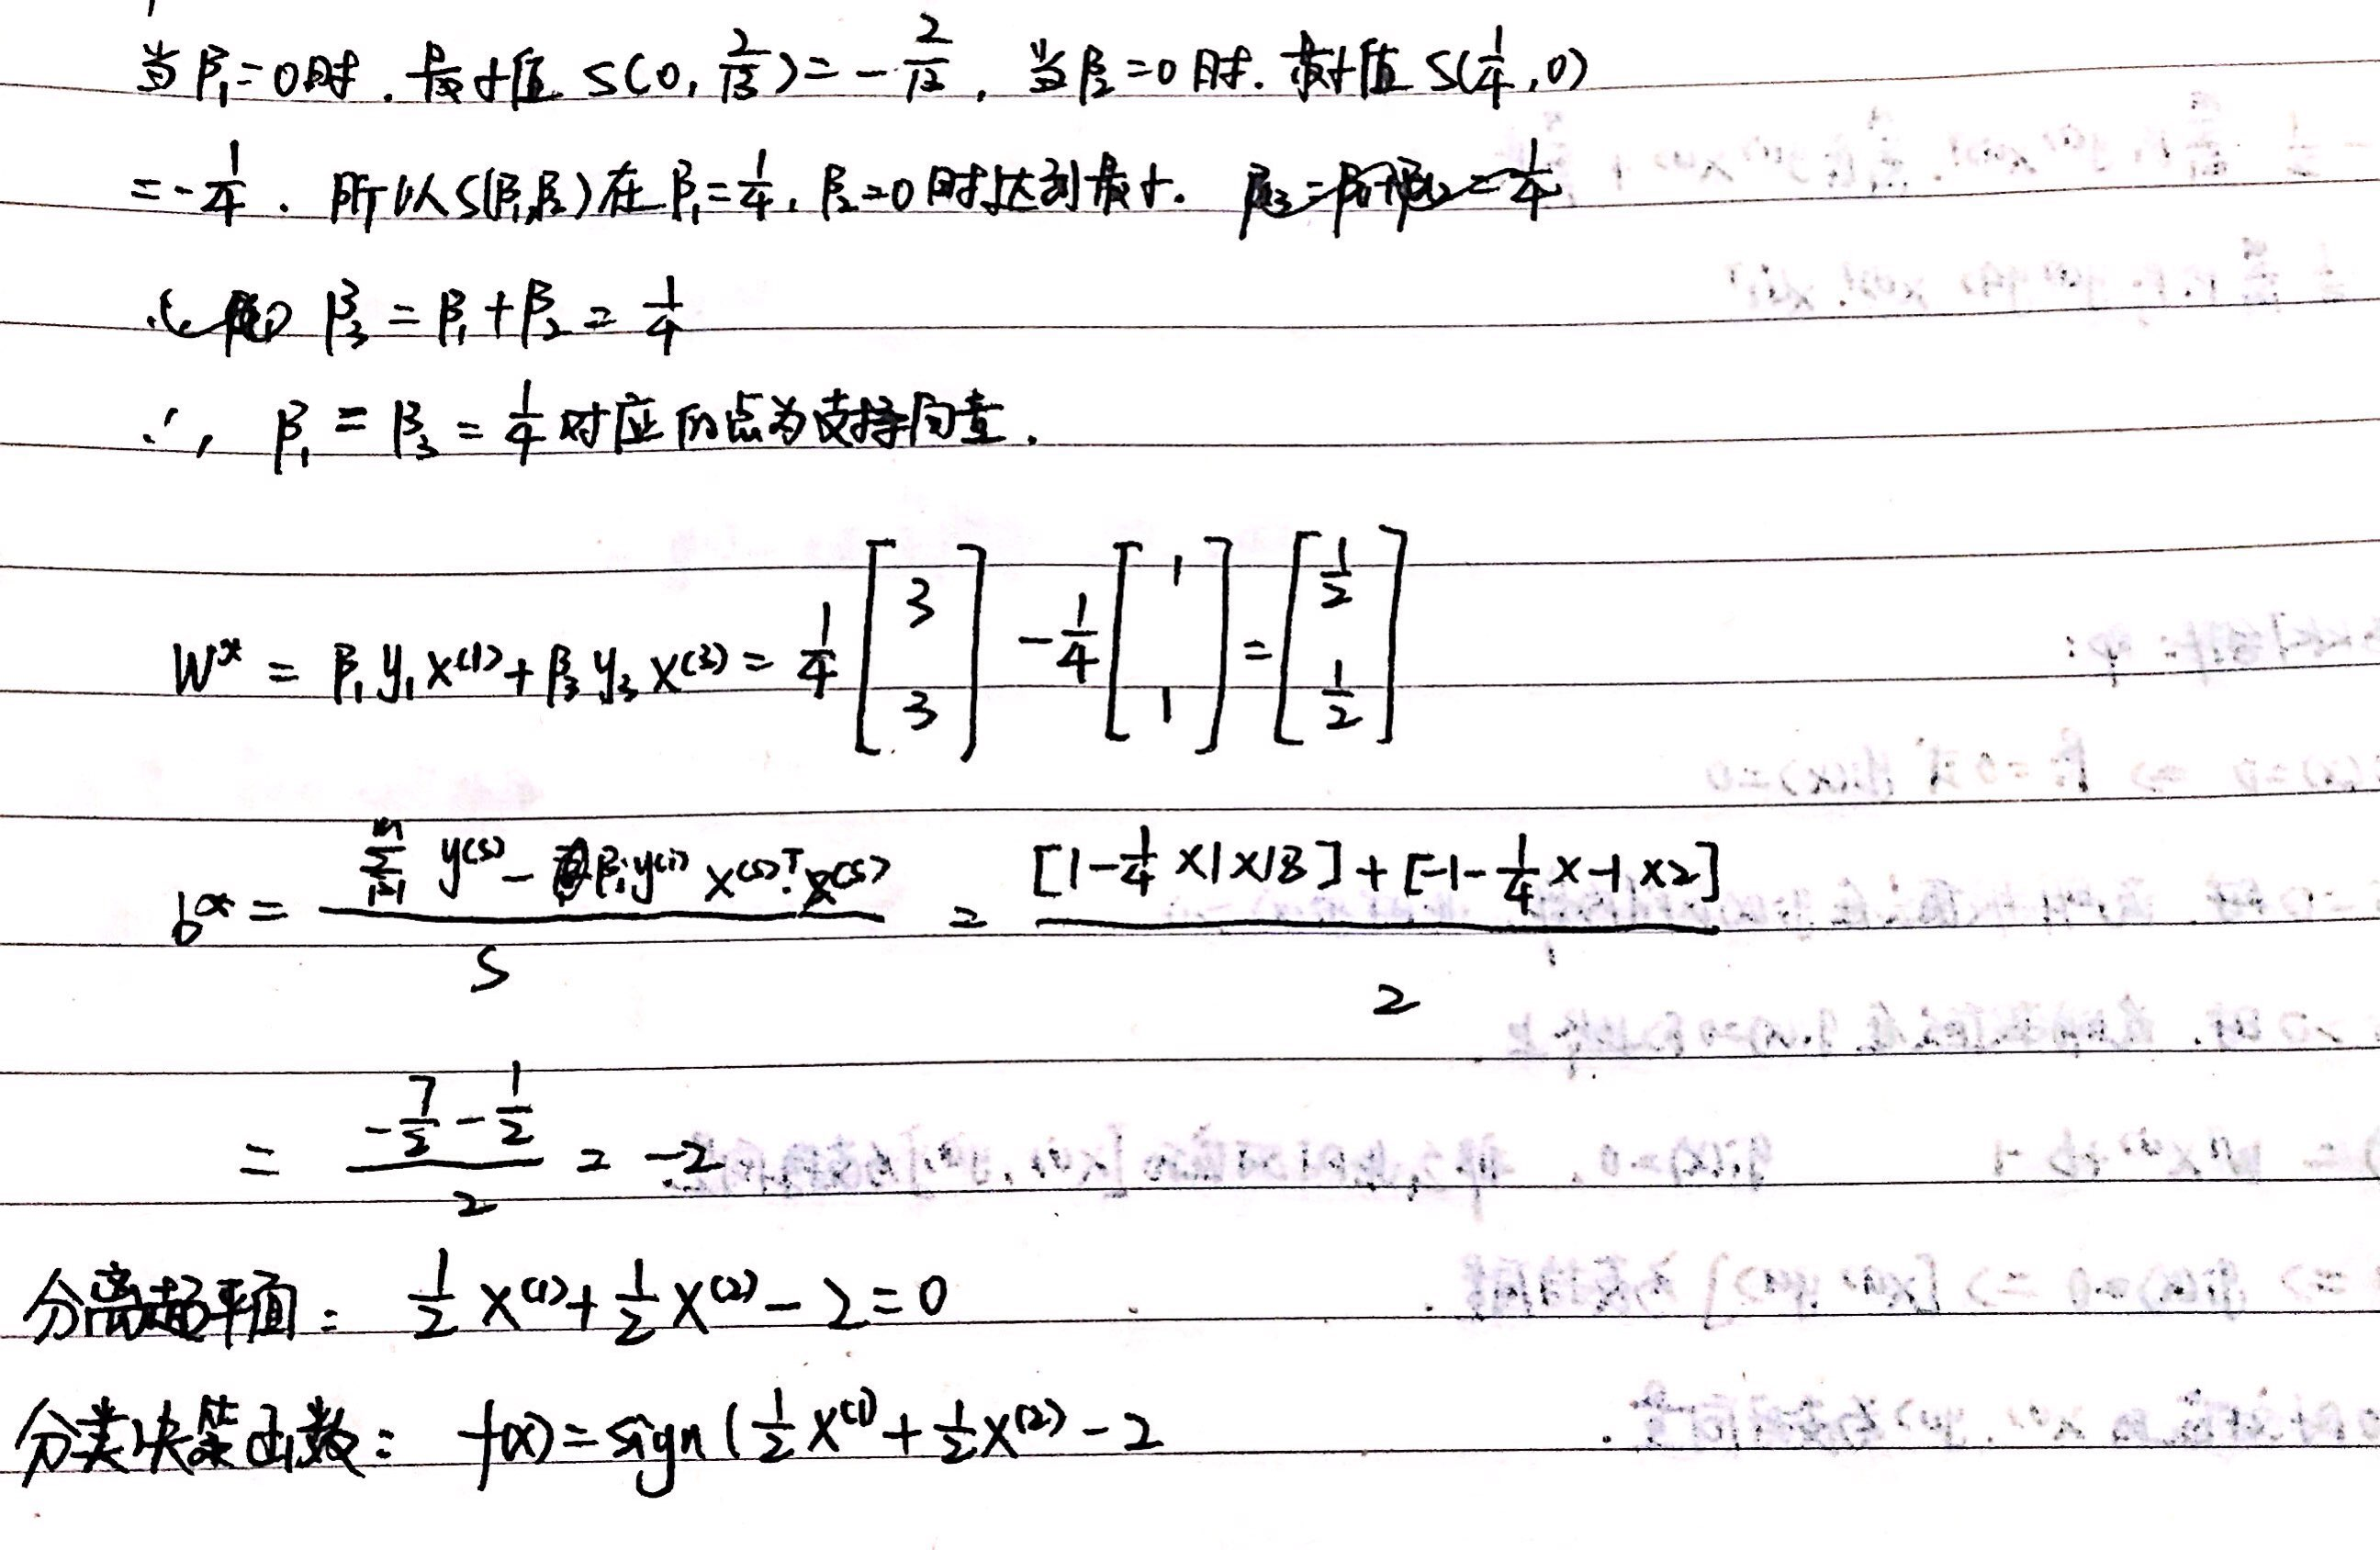 当β₁=0时. 最小值 S(0, 2/13)=-2/13, 当β₂=0时. 最小值 S(1/4,0)
=-1/4. 所以S(β₁,β₂)在β₁=1/4, β₂=0时达到最小.
β₃=β₁+β₂=1/4
∴, β₁=β₃=1/4对应的点为支持向量.
W* = β₁y₁x⁽¹⁾+β₃y₃x⁽³⁾ = 1/4[3 3] -1/4[1 1] = [1/2 1/2]
b* = (∑ᵢ₌₁ᵐ y⁽ˢ⁾ - βᵢy⁽ⁱ⁾x⁽ˢ⁾ᵀ·x⁽ˢ⁾)/S = ([1-1/4×1×18]+[-1-1/4×-1×2])/2
= (-7/2-1/2)/2 = -2
分离超平面: 1/2x⁽¹⁾+1/2x⁽²⁾-2=0
分类决策函数: f(x)=sign(1/2x⁽¹⁾+1/2x⁽²⁾-2